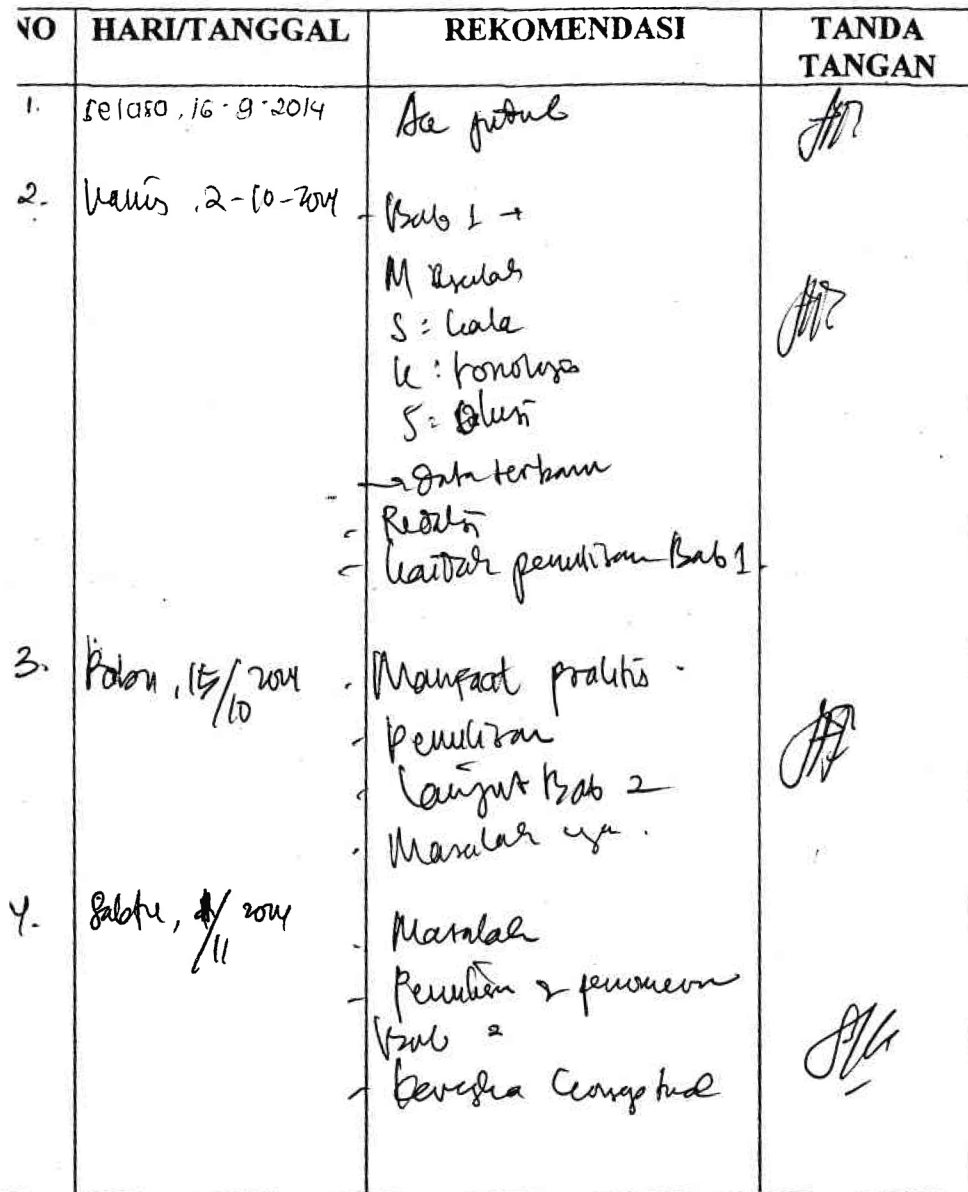 NO HARI/TANGGAL REKOMENDASI TANDA TANGAN
1. Selasa, 16-9-2014 Acc judul
2. Kamis, 2-10-2014 - Bab 1 →
M asalah
S : kala
K : ronologis
S : olusi
→ Data terbaru
- Redaksi
- kaidah penulisan Bab 1
3. Rabu, 15/10 2014 . Manfaat praktis .
- Penulisan
- Lanjut Bab 2
. Masalah
4. Sabtu, 1/11 2014 . Masalah
- Penulisan & penomoran
Bab 2
- kerangka konseptual